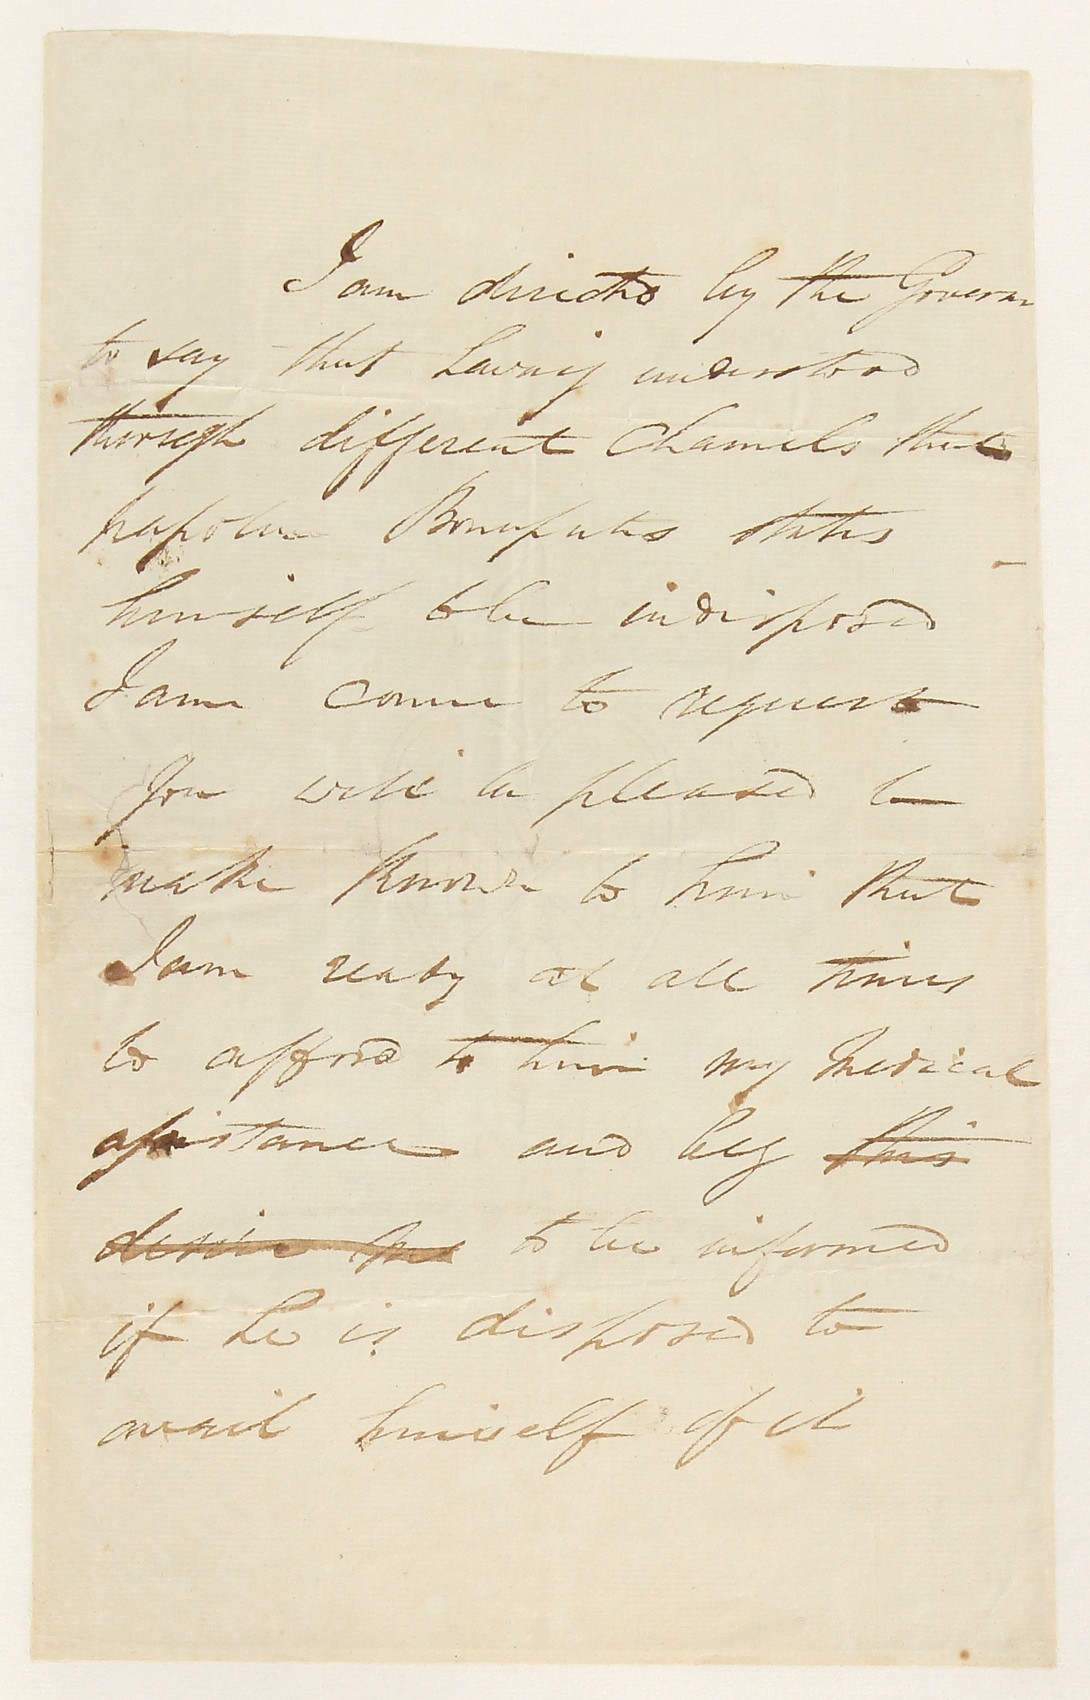 I am directed by the Governor
to say that having understood
through different channels that
Napoleon Bonaparte states
himself to be indisposed
I am come to request
You will be pleased to
make known to him that
I am ready at all times
to afford to him my Medical
assistance and beg this
desire me to be informed
if he is disposed to
avail himself of it